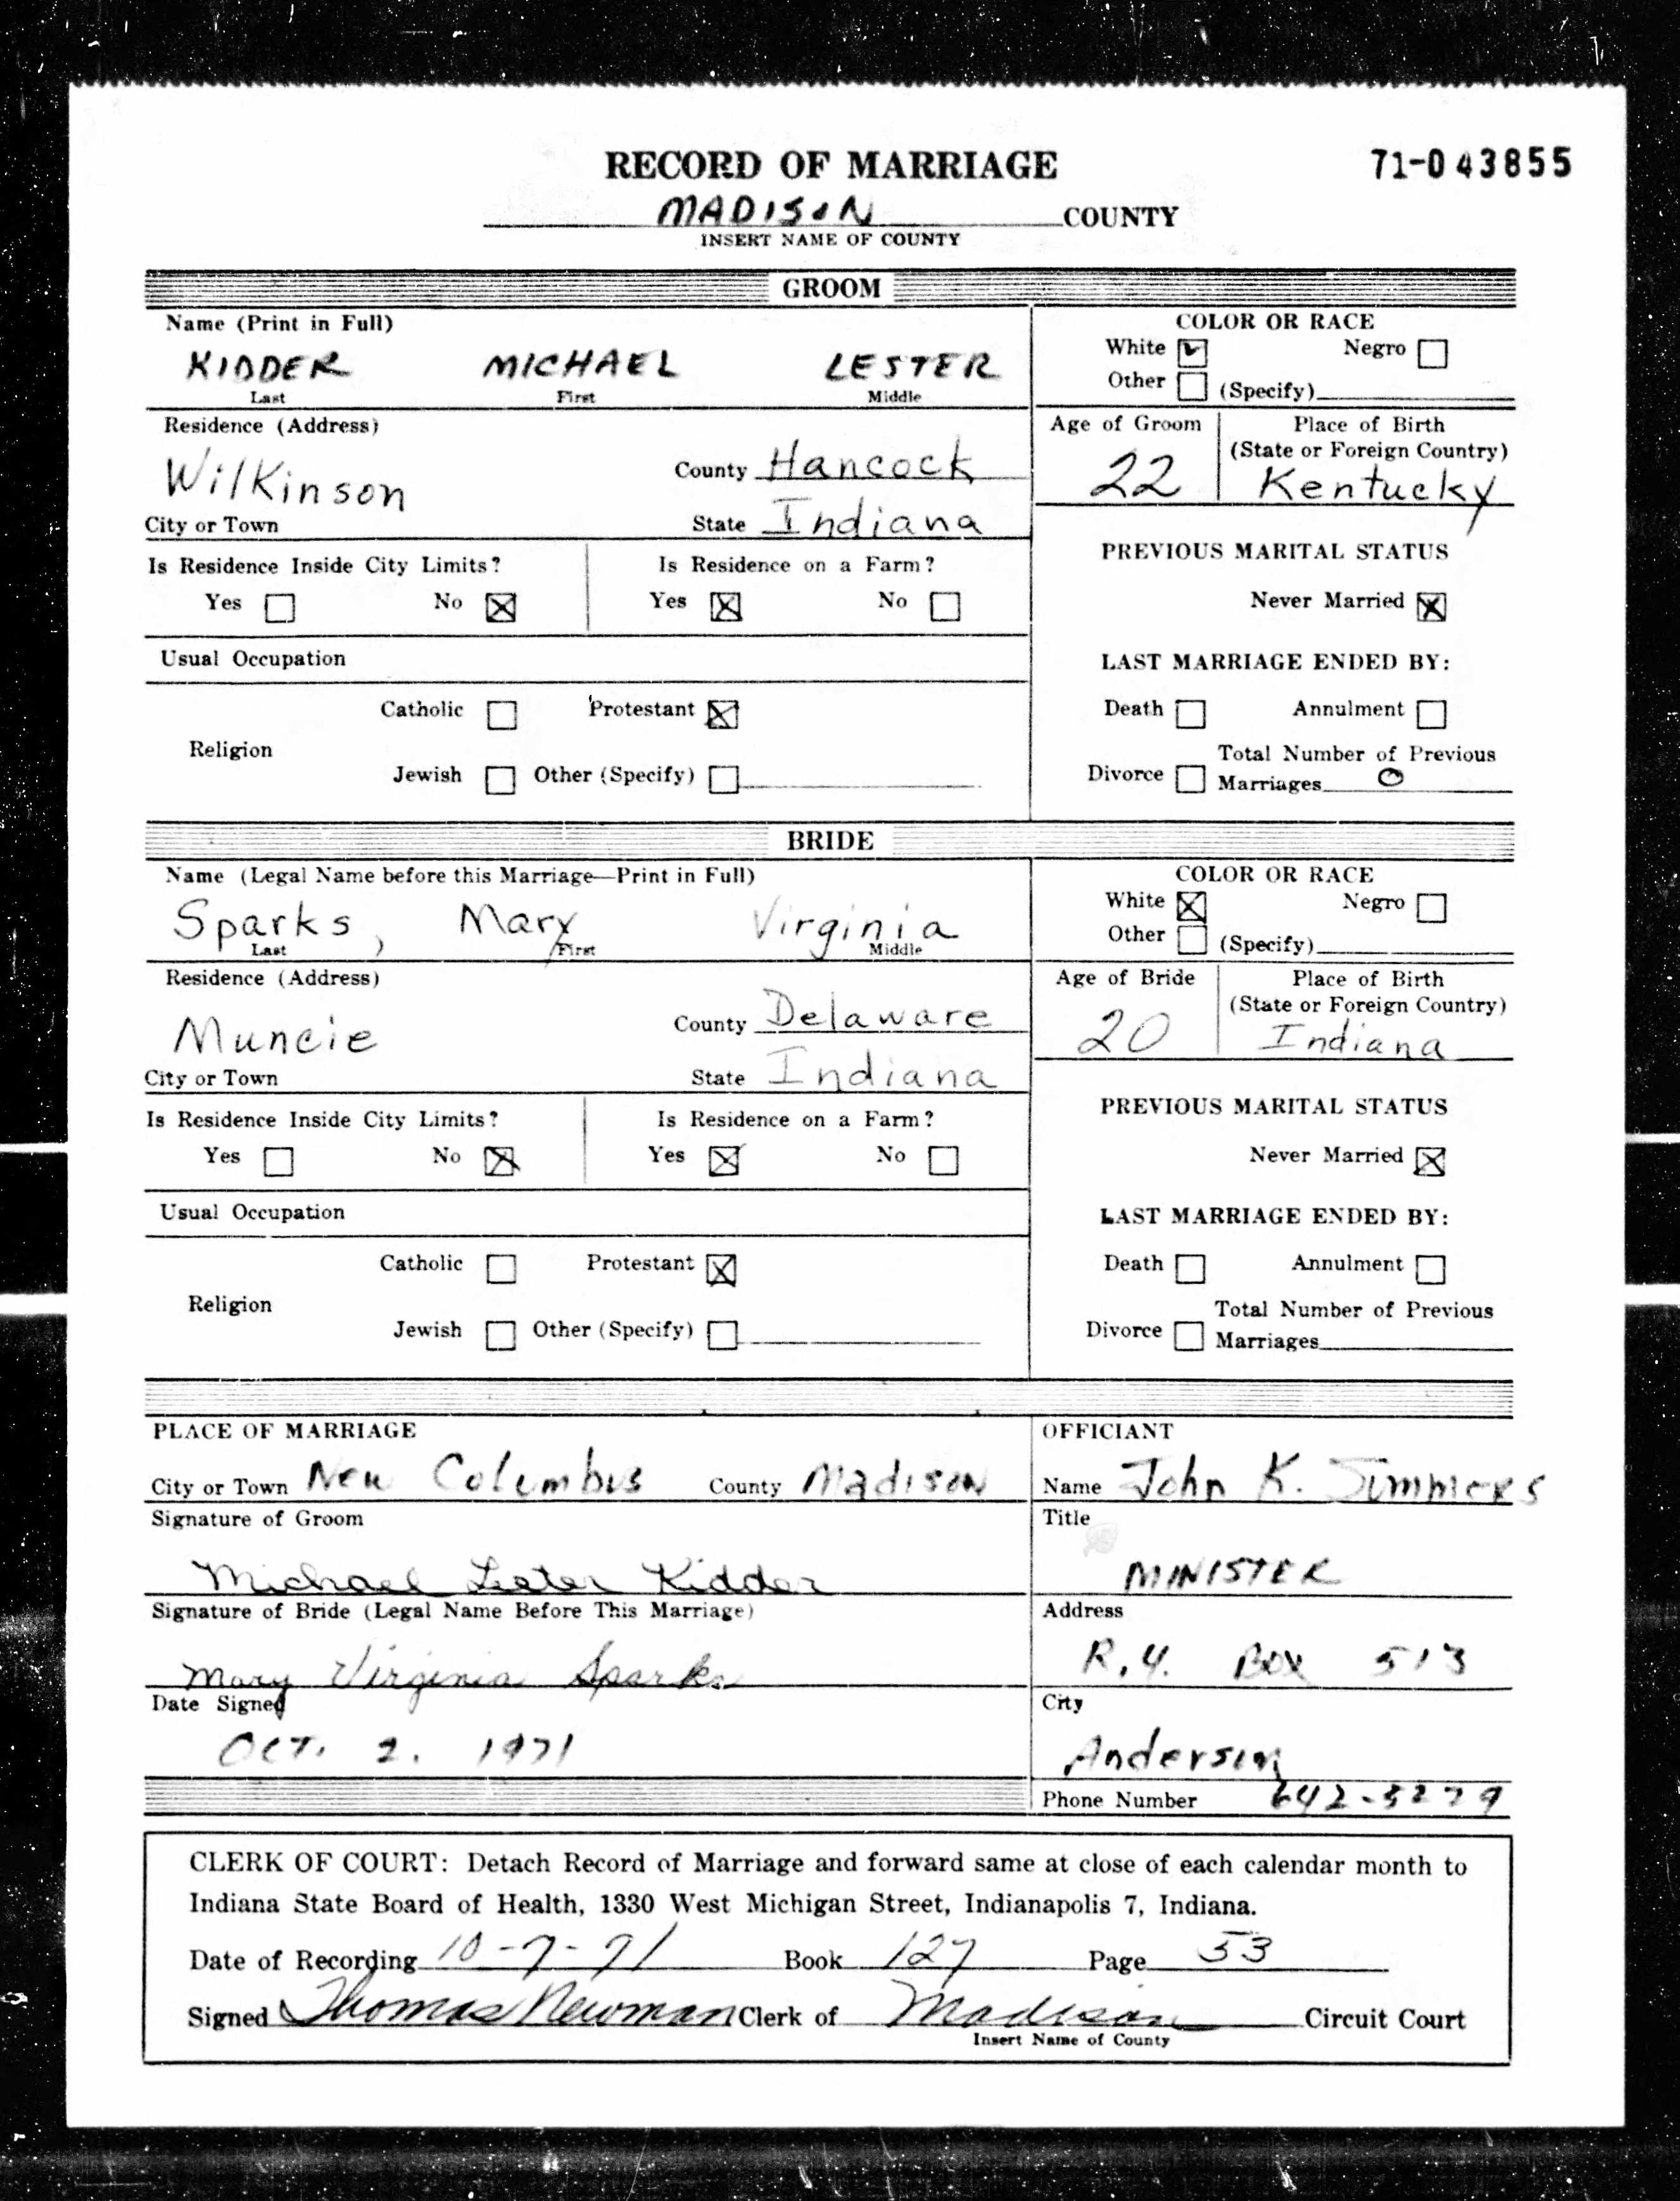 RECORD OF MARRIAGE 71-043855
MADISON COUNTY
INSERT NAME OF COUNTY
GROOM
Name (Print in Full)
KIDDER MICHAEL LESTER
Last First Middle
COLOR OR RACE
White Negro
Other (Specify)
Residence (Address)
Wilkinson County Hancock
City or Town State Indiana
Age of Groom Place of Birth
(State or Foreign Country)
22 Kentucky
Is Residence Inside City Limits? Is Residence on a Farm?
Yes No Yes No
PREVIOUS MARITAL STATUS
Never Married
Usual Occupation
LAST MARRIAGE ENDED BY:
Catholic Protestant
Religion
Jewish Other (Specify)
Death Annulment
Total Number of Previous
Divorce Marriages 0
BRIDE
Name (Legal Name before this Marriage—Print in Full)
Sparks, Mary Virginia
Last First Middle
COLOR OR RACE
White Negro
Other (Specify)
Residence (Address)
Muncie County Delaware
City or Town State Indiana
Age of Bride Place of Birth
(State or Foreign Country)
20 Indiana
Is Residence Inside City Limits? Is Residence on a Farm?
Yes No Yes No
PREVIOUS MARITAL STATUS
Never Married
Usual Occupation
LAST MARRIAGE ENDED BY:
Catholic Protestant
Religion
Jewish Other (Specify)
Death Annulment
Total Number of Previous
Divorce Marriages
PLACE OF MARRIAGE
City or Town New Columbus County Madison
Signature of Groom
Michael Lester Kidder
Signature of Bride (Legal Name Before This Marriage)
Mary Virginia Sparks
Date Signed
OCT. 2. 1971
OFFICIANT
Name John K.
Title
MINISTER
Address
R.4. Box 513
City
Anderson
Phone Number 642-5279
CLERK OF COURT: Detach Record of Marriage and forward same at close of each calendar month to
Indiana State Board of Health, 1330 West Michigan Street, Indianapolis 7, Indiana.
Date of Recording 10-7-71 Book 127 Page 53
Signed Thomas Newman Clerk of Madison Circuit Court
Insert Name of County